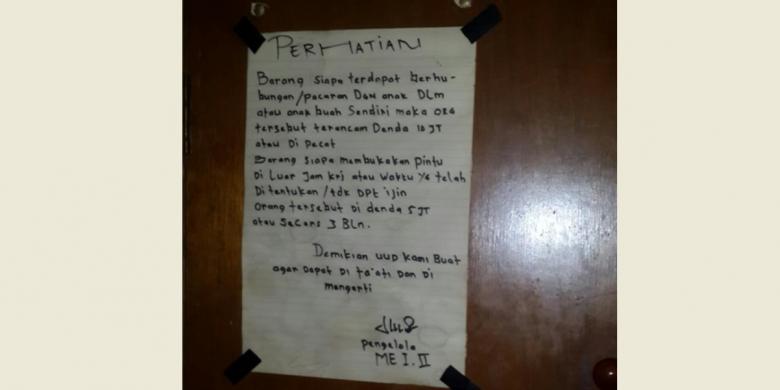 PERHATIAN
Barang siapa terdapat berhu-
bungan/pacaran DGN anak DLm
atau anak buah Sendiri maka ORG
tersebut terancam Denda 10 JT
atau Di pecat
Barang siapa membukakan pintu
Di Luar Jam krj atau Waktu Yg telah
Ditentukan / tdk DPt ijin
orang tersebut Di denda 5 JT
atau 3 BLn.
Demikian UUD Kami Buat
agar Dapat Di ta'ati Dan Di
mengerti
pengelola
ME I. II